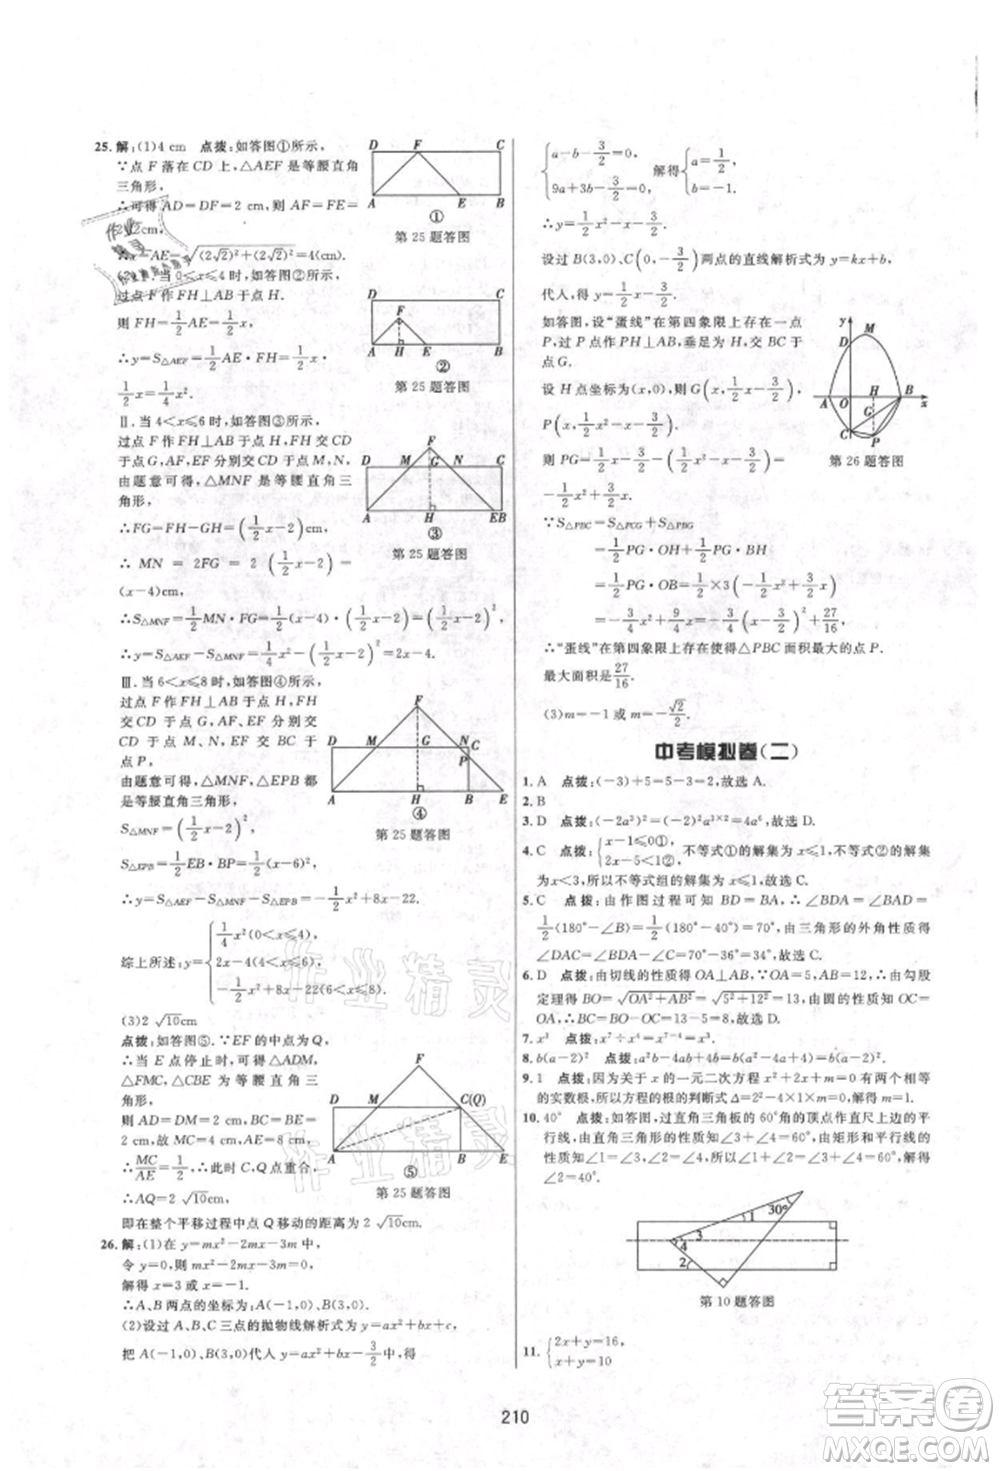 25.解:(1)4 cm 点拨:如答图①所示,
∵点 F 落在 CD 上,△AEF 是等腰直角
三角形,
∴可得 AD=DF=2 cm,则 AF=FE=
2√2cm,
∴x=AE=√((2√2)²+(2√2)²)=4(cm).
(2)Ⅰ.当 0<x≤4 时,如答图②所示,
过点 F 作 FH⊥AB 于点 H.
则 FH=1/2 AE=1/2 x,
∴y=S△AEF=1/2 AE·FH=1/2 x·
1/2 x=1/4 x².
Ⅱ.当 4<x≤6 时,如答图③所示,
过点 F 作 FH⊥AB 于点 H,FH 交 CD
于点 G,AF,EF 分别交 CD 于点 M,N,
由题意可得,△MNF 是等腰直角三
角形,
∴FG=FH-GH=(1/2 x-2)cm,
∴ MN = 2FG = 2(1/2 x-2) =
(x-4)cm,
∴S△MNF=1/2 MN·FG=1/2(x-4)·(1/2 x-2)=(1/2 x-2)²,
∴y=S△AEF-S△MNF=1/4 x²-(1/2 x-2)²=2x-4.
Ⅲ.当 6<x≤8 时,如答图④所示,
过点 F 作 FH⊥AB 于点 H,FH
交 CD 于点 G,AF,EF 分别交
CD 于点 M,N,EF 与 BC 交于
点 P,
由题意可得,△MNF,△EPB 都
是等腰直角三角形,
S△MNF=(1/2 x-2)²,
S△EPB=1/2 EB·BP=1/2(x-6)²,
∴y=S△AEF-S△MNF-S△EPB=-1/2 x²+8x-22.
综上所述:y={1/4 x²(0<x≤4),
2x-4(4<x≤6),
-1/2 x²+8x-22(6<x≤8).
(3)2√10cm
点拨:如答图⑤.∵EF 的中点为 Q,
∴当 E 点停止时,可得△ADM,
△FMC,△CBE 为等腰直角三角
形,
则 AD=DM=2 cm,BC=BE=
2 cm.故 MC=4 cm,AE=8 cm,
∴MC/AE=1/2,∴此时 C,Q 点重合,
∴AQ=2√10cm,
即在整个平移过程中点 Q 移动的距离为 2√10cm.
26.解:(1)在 y=mx²-2mx-3m 中,
令 y=0,则 mx²-2mx-3m=0,
解得 x=3或 x=-1.
∴A,B 两点的坐标为:A(-1,0),B(3,0).
(2)设过 A,B,C 三点的抛物线解析式为 y=ax²+bx+c,
把 A(-1,0),B(3,0)代人 y=ax²+bx-3/2 中,得
D F C
A E B
①
第 25 题答图
D C
F
A H E B
②
第 25 题答图
F
D M G N C
A H EB
③
第 25 题答图
F
D M G N C
P
A H B E
④
第 25 题答图
F
D M C(Q)
A B E
⑤
第 25 题答图
{a-b-3/2=0, 9a+3b-3/2=0, 解得{a=1/2, b=-1,
∴y=1/2 x²-x-3/2.
设过 B(3,0),C(0,-3/2)两点的直线解析式为 y=kx+b,
代人,得 y=1/2 x-3/2.
如答图,设“蛋线”在第四象限上存在一点
P,过点 P 作 PH⊥AB,垂足为 H,交 BC 于
点 G.
设 H 点坐标为(x,0),则 G(x,1/2 x-3/2),
P(x,1/2 x²-x-3/2).
则 PG=1/2 x-3/2-(1/2 x²-x-3/2)=
-1/2 x²+3/2 x.
∵S△PBC=S△PCG+S△PBG
=1/2 PG·OH+1/2 PG·BH
=1/2 PG·OB=1/2×3(-1/2 x²+3/2 x)
=-3/4 x²+9/4 x=-3/4(x-3/2)²+27/16
∴“蛋线”在第四象限上存在使得△PBC 面积最大的点 P.
最大面积是27/16.
(3)m=-1 或 m=-√2/2
y
M
A O H B x
G
C P
第 26 题答图
中考模拟卷(二)
1.A 点拨:(-3)+5=5-3=2,故选 A.
2.B
3.D 点拨:(-2a³)²=(-2)²a³ˣ²=4a⁶,故选 D.
4.C 点拨:{x-1≤0①, 2x-5<1②, 不等式①的解集为 x≤1,不等式②的解集
为 x<3,所以不等式组的解集为 x≤1.故选 C.
5.C 点拨:由作图过程可知 BD=BA,∴∠BDA=∠BAD=
1/2(180°-∠B)=1/2(180°-40°)=70°,由三角形的外角性质可
知∠DAC=∠BDA-∠C=70°-36°=34°.故选 C.
6.D 点拨:由切线的性质可知 OA⊥AB,∵OA=5,∴由勾股
定理可得 BO=√(OA²+AB²)=√(5²+12²)=13,由圆的性质知 OC=
OA,∴BC=OB-OC=13-5=8.故选 D.
7.x³ 点拨:x⁷÷x⁴=x⁷⁻⁴=x³.
8.b(a-2)² 点拨:a²b-4ab+4b=b(a²-4a+4)=b(a-2)².
9.1 点拨:因为关于 x 的一元二次方程 x²+2x+m=0有两个相等
的实数根,所以方程的根的判断式 Δ=2²-4m=0,解得 m=1.
10.40° 点拨:如答图,过直角三角板的60°角的顶点作直尺上边的平
行线,由直角三角形的性质知∠3+∠4=60°,由平行线的性质可
得∠1=∠3,∠2=∠4,∴∠1+∠2=60°.又∵∠1=20°,∴
∠2=40°.
30°
1
3
4
2
第 10 题答图
11.{2x+y=16, x+y=10
210
作业精灵
作业精灵
答案圈
MXQE.COM